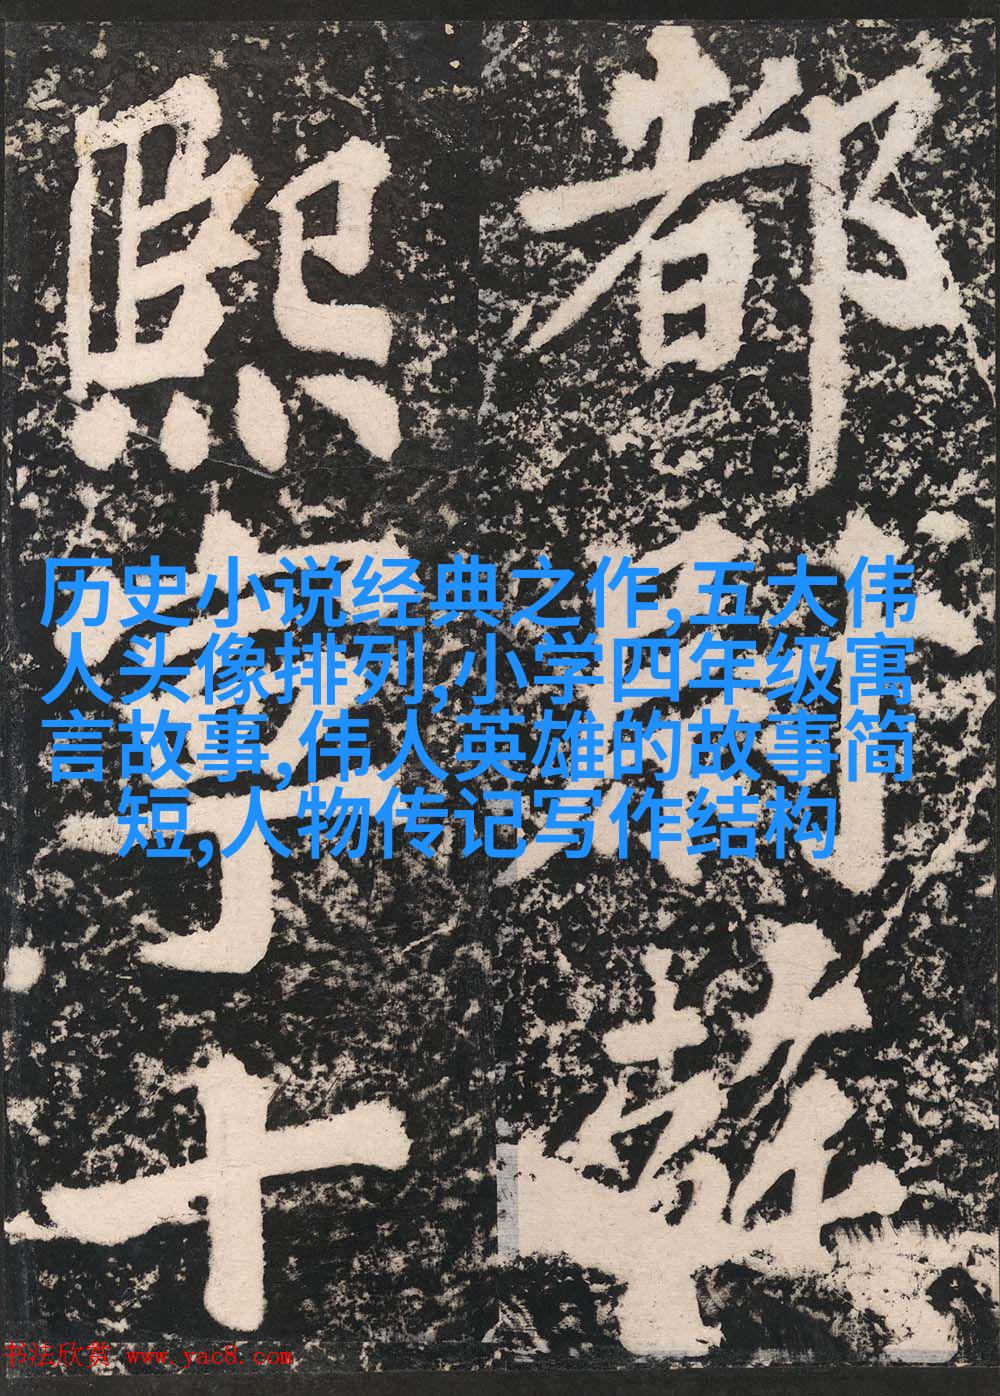 都尉蘇
熙寧十
历史小说经典之作,五大伟
人头像排列,小学四年级寓
言故事,伟人英雄的故事简
短,人物传记写作结构
书法欣赏 www.yac8.com